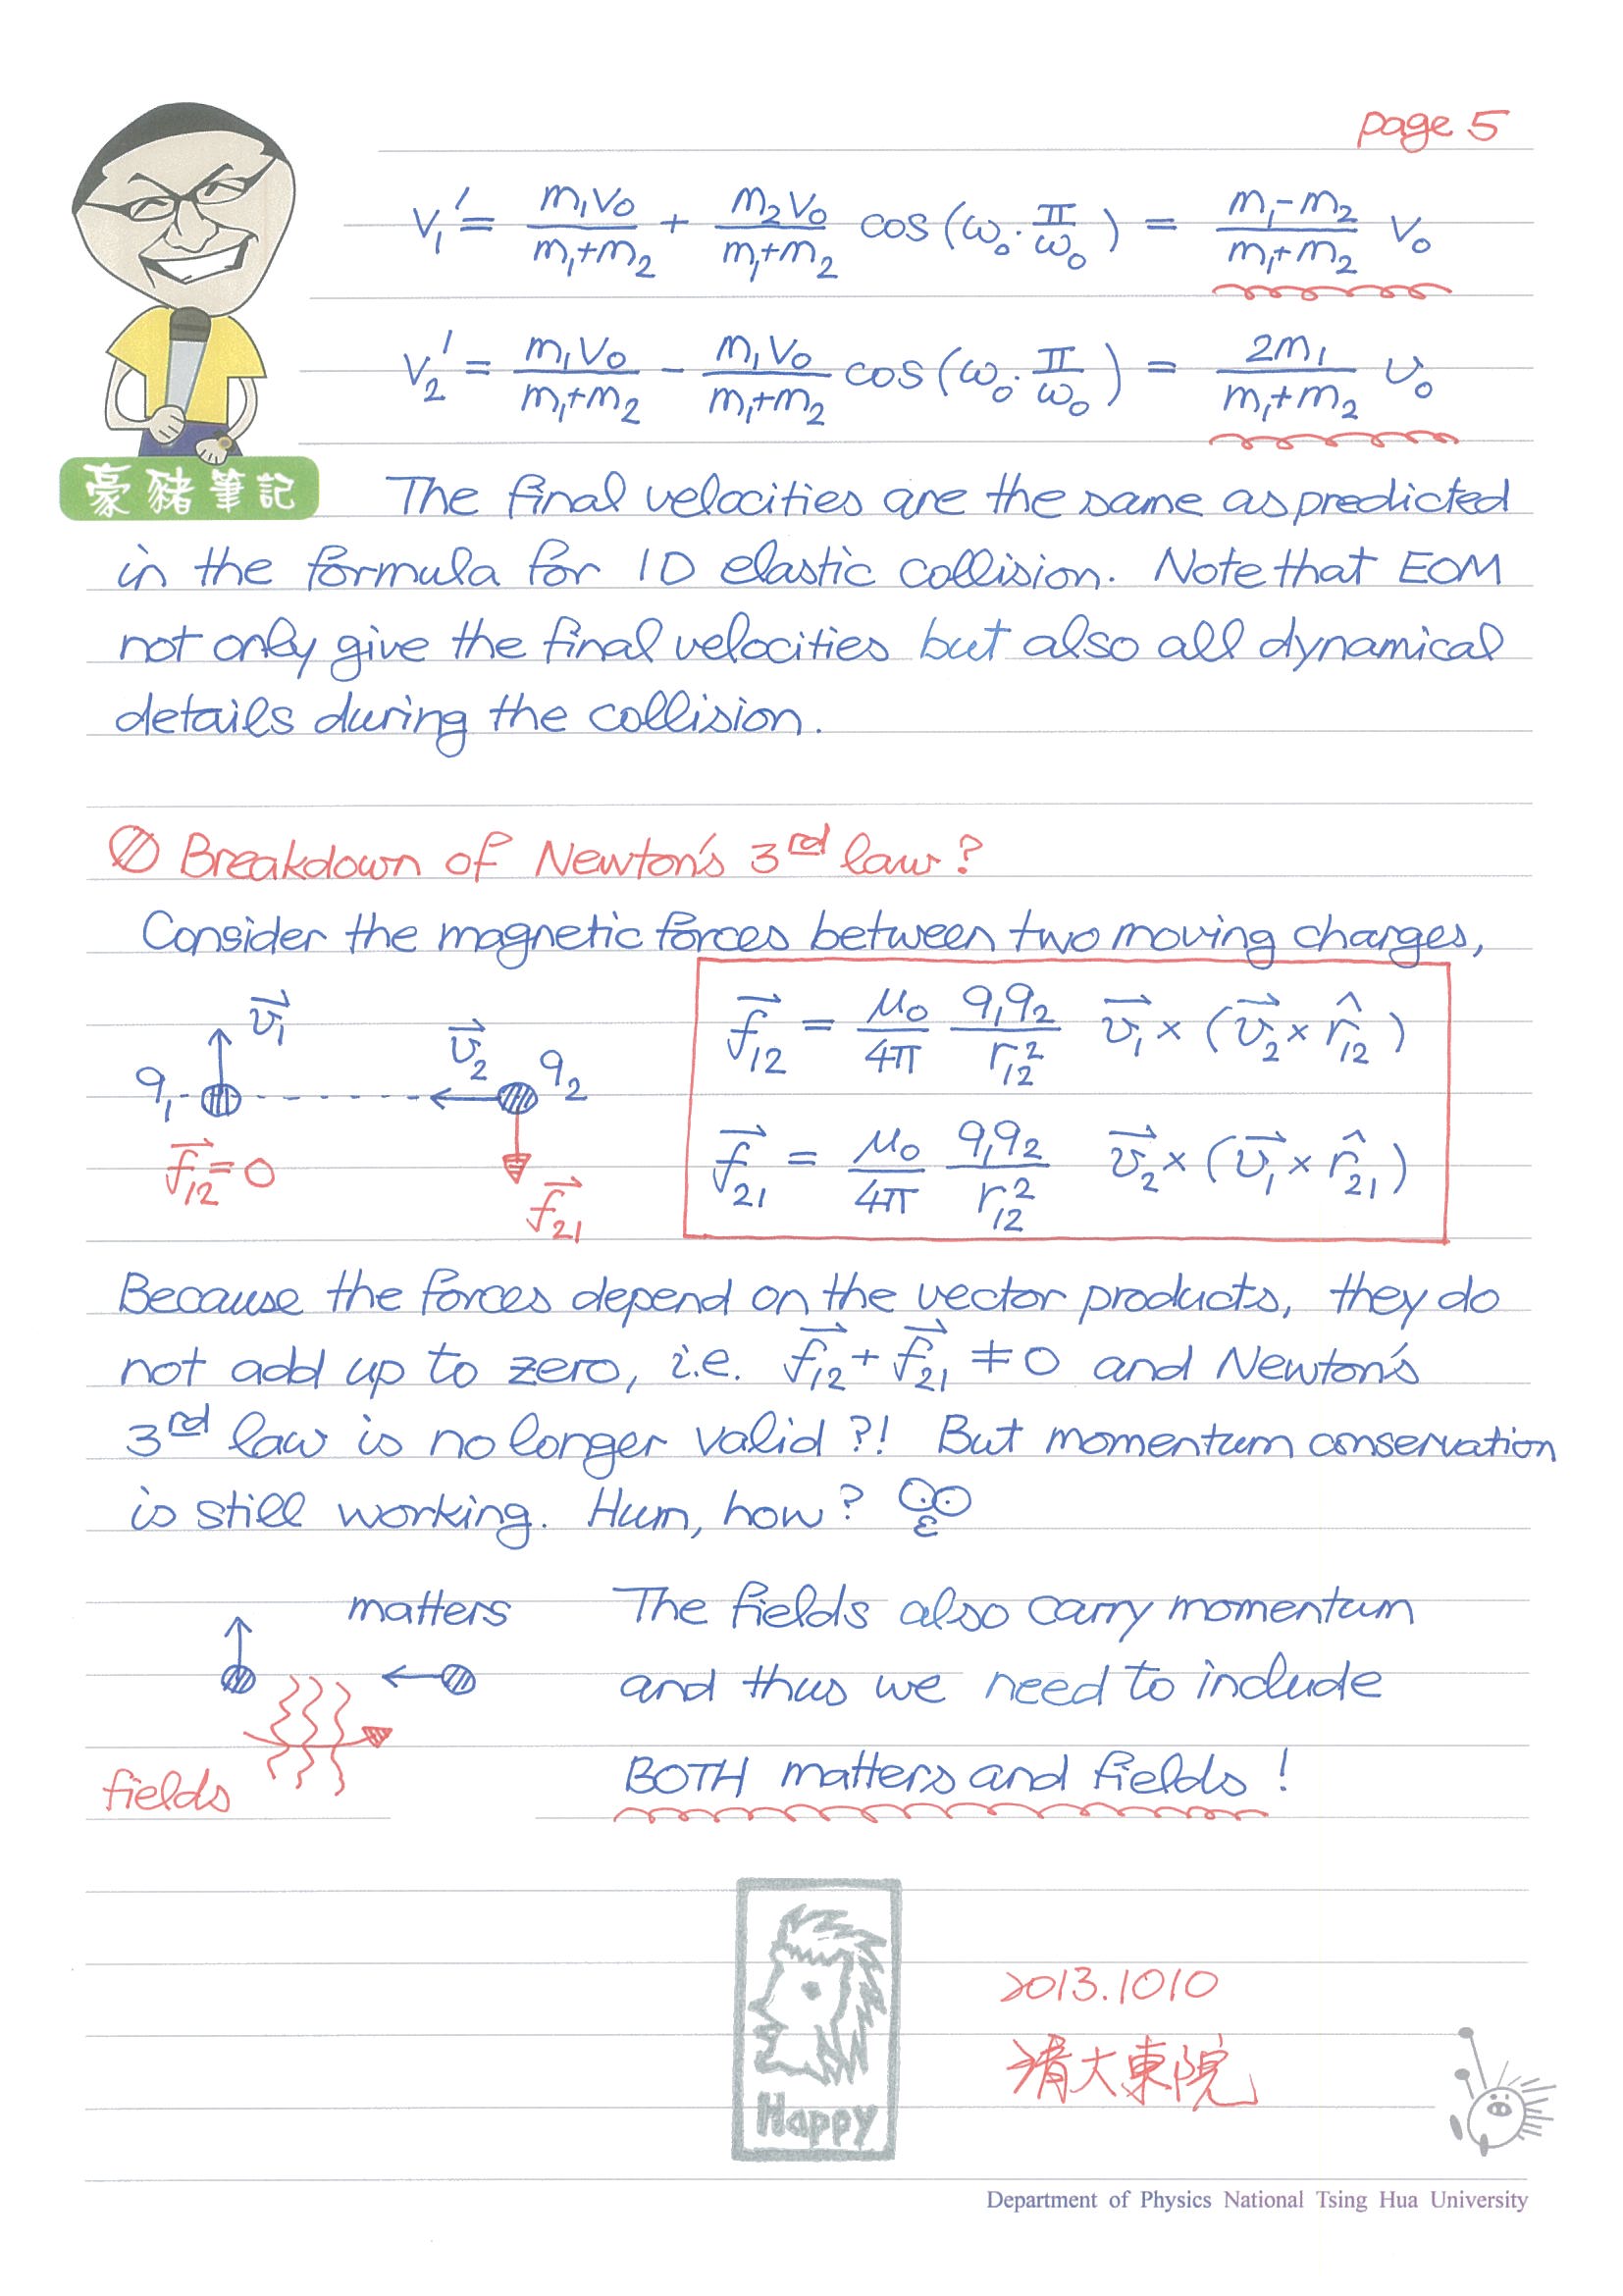 page 5
v₁′ = m₁v₀/(m₁+m₂) + m₂v₀/(m₁+m₂) cos(ω₀·π/ω₀) = (m₁-m₂)/(m₁+m₂) v₀
v₂′ = m₁v₀/(m₁+m₂) - m₁v₀/(m₁+m₂) cos(ω₀·π/ω₀) = 2m₁/(m₁+m₂) v₀
豪豬筆記
The final velocities are the same as predicted
in the formula for 1D elastic collision. Note that EOM
not only give the final velocities but also all dynamical
details during the collision.
Breakdown of Newton's 3rd law?
Consider the magnetic forces between two moving charges,
v⃗₁
v⃗₂
q₁
q₂
f⃗₁₂=0
f⃗₂₁
f⃗₁₂ = μ₀/4π q₁q₂/r₁₂² v⃗₁×(v⃗₂×r̂₁₂)
f⃗₂₁ = μ₀/4π q₁q₂/r₁₂² v⃗₂×(v⃗₁×r̂₂₁)
Because the forces depend on the vector products, they do
not add up to zero, i.e. f⃗₁₂+f⃗₂₁ ≠0 and Newton's
3rd law is no longer valid?! But momentum conservation
is still working. Hum, how?
matters
fields
The fields also carry momentum
and thus we need to include
BOTH matters and fields!
Happy
2013.1010
清大東院
Department of Physics National Tsing Hua University